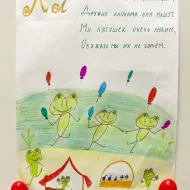 Ля
Дружно лапками нам машут.
Мы лягушек очень любим,
Обижать мы их не будем.